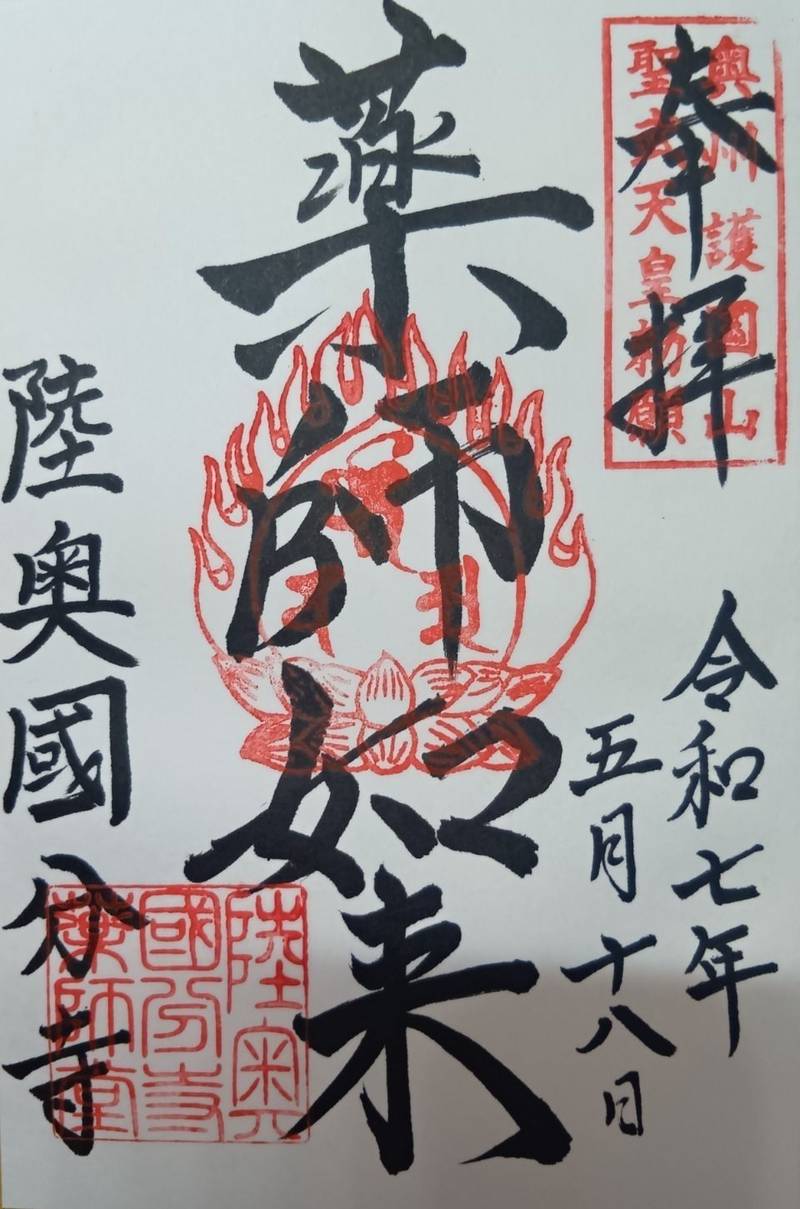 奉拝
奥州護國山
聖武天皇勅願
令和七年
五月十八日
薬師如来
陸奥國分寺
陸奥
國分寺
薬師堂